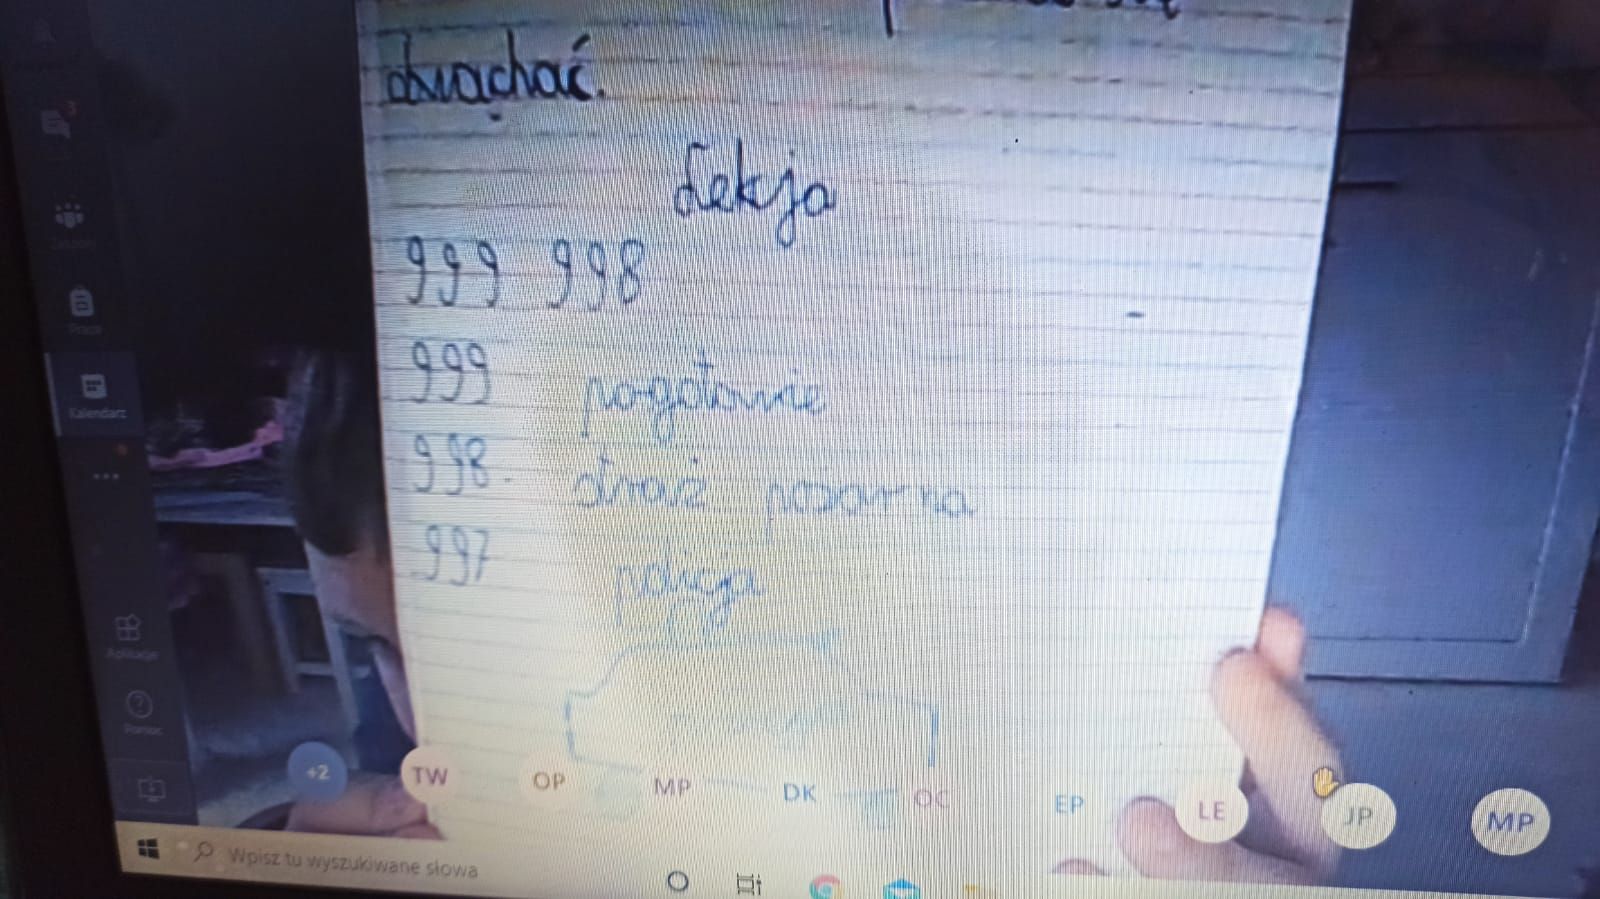 się
obwąchać.
Lekja
999 998
999 pogotowie
998. straż pożarna
997 policja
3
Praca
Kalendarz
...
Aplikacje
Pomoc
+2
TW
OP
MP
DK
OC
EP
LE
JP
MP
Wpisz tu wyszukiwane słowa